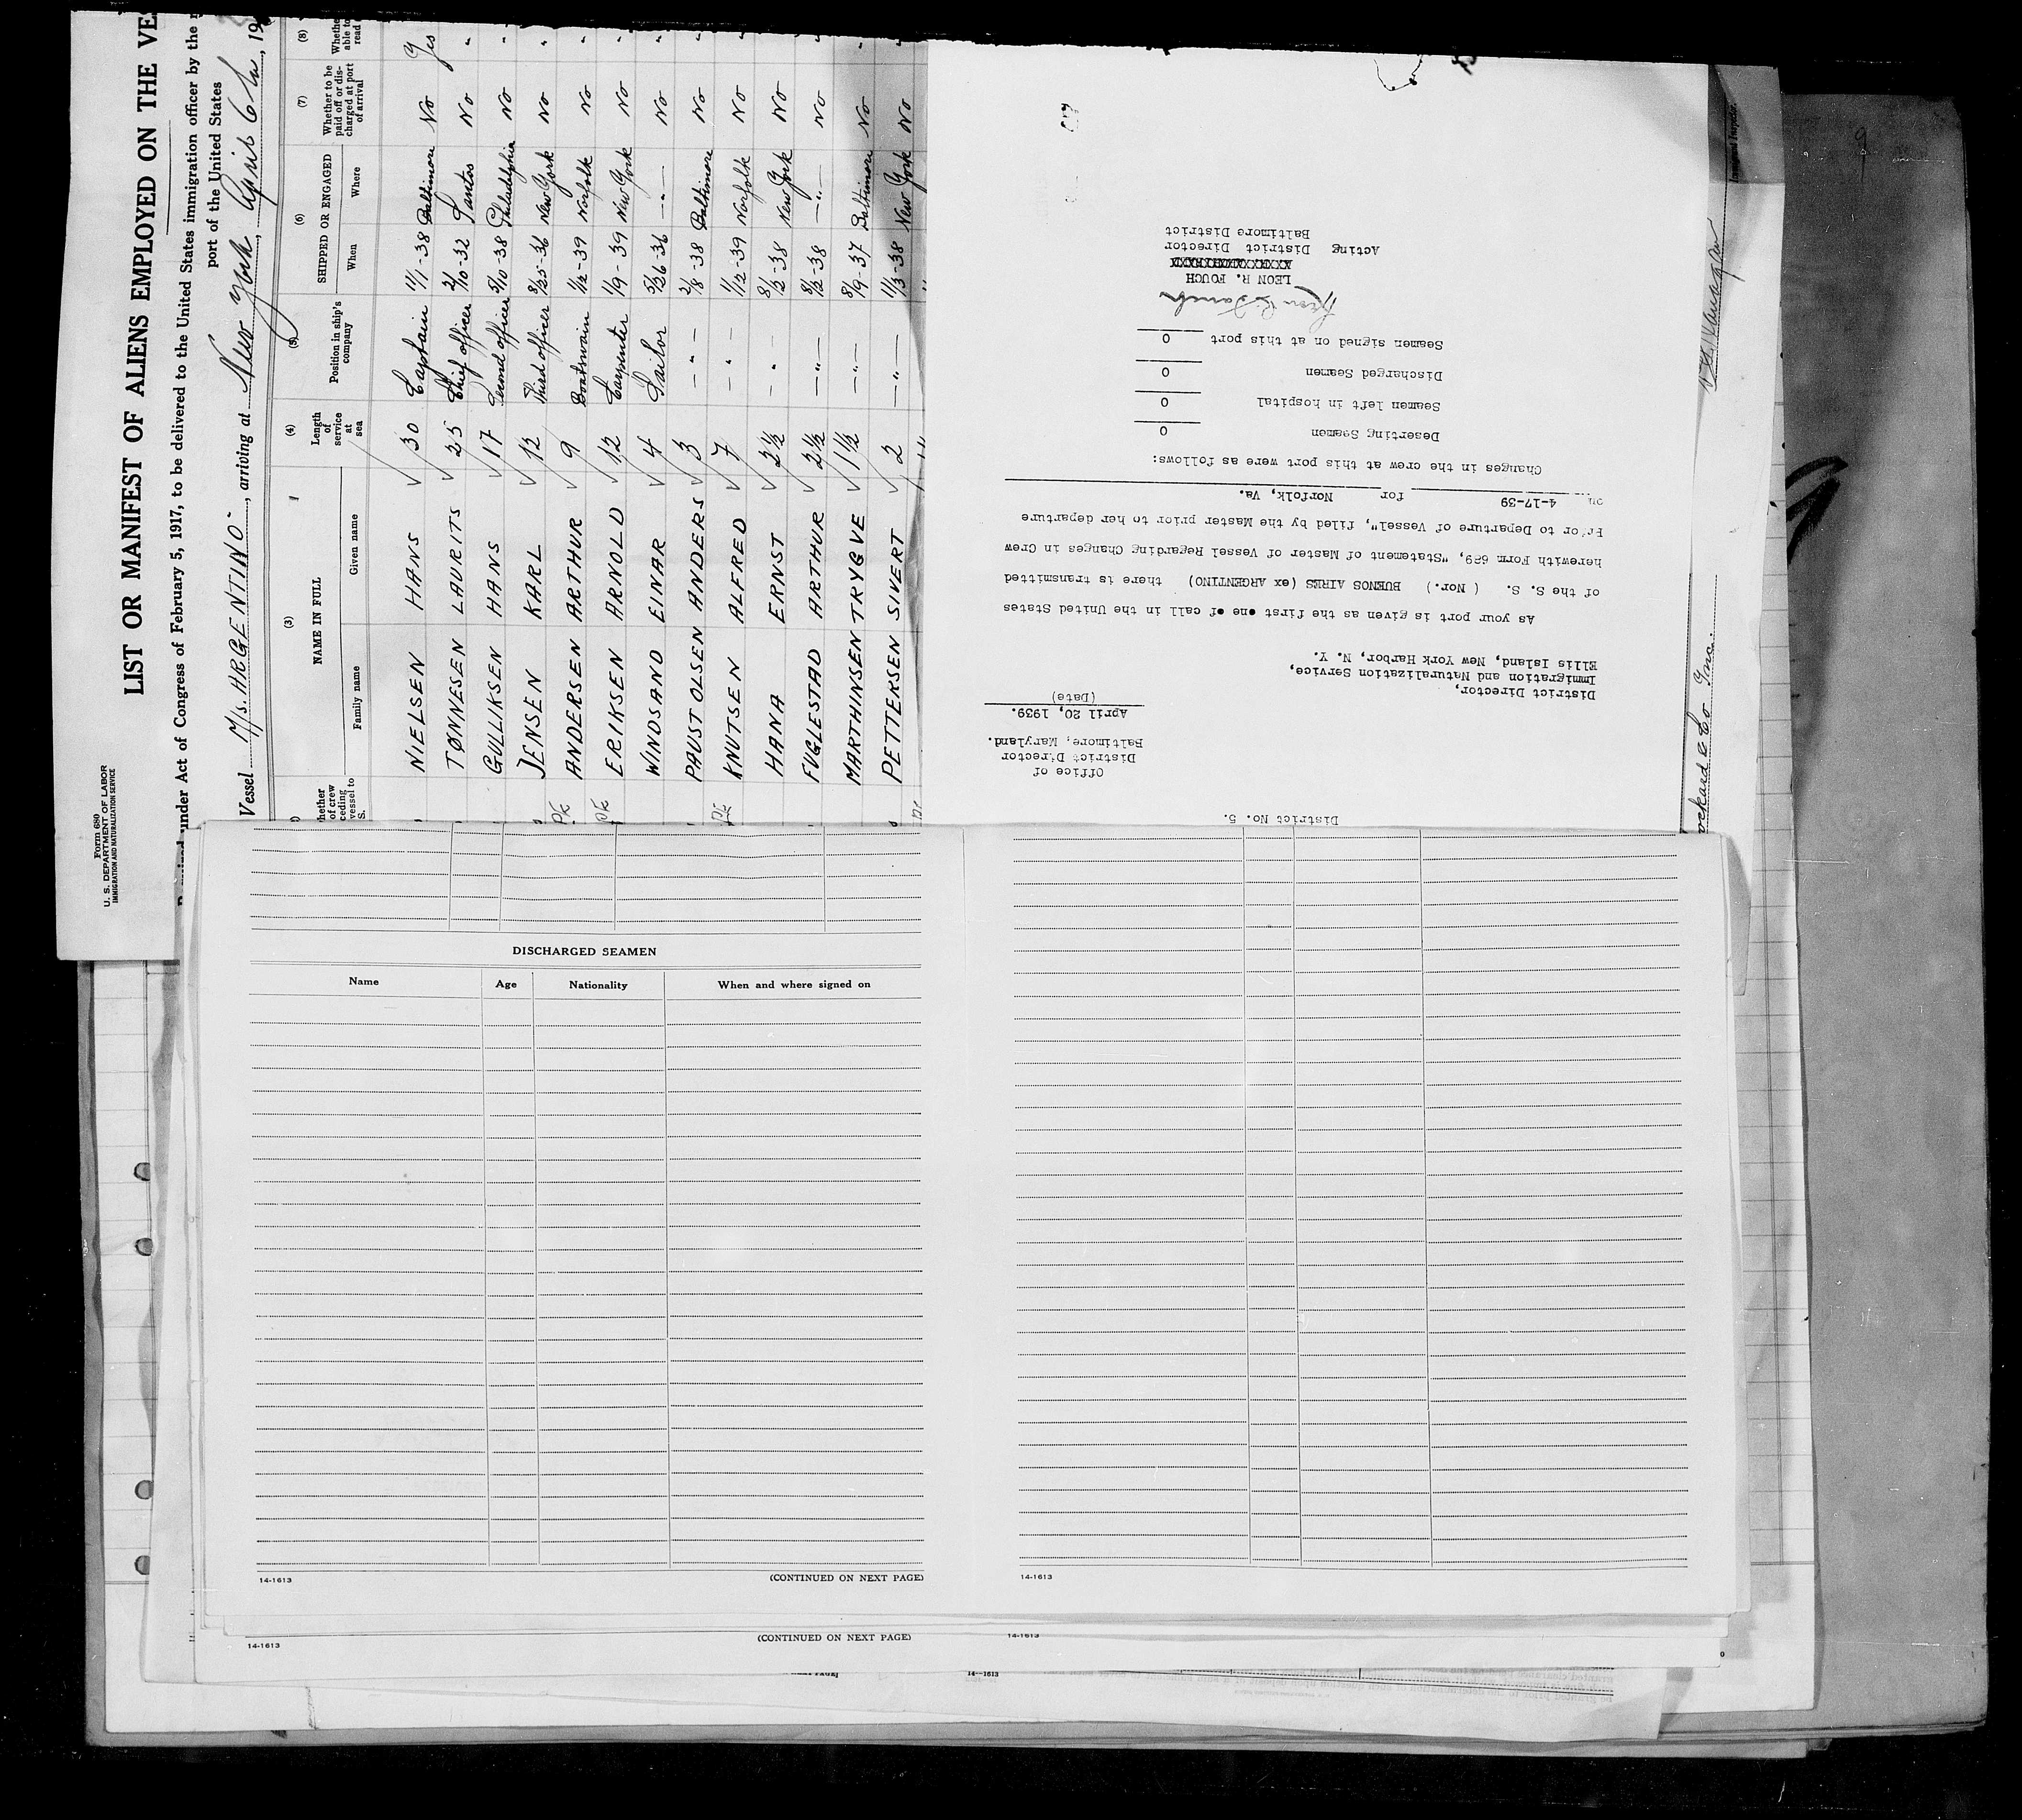 Form 680
U. S. DEPARTMENT OF LABOR
IMMIGRATION AND NATURALIZATION SERVICE
LIST OR MANIFEST OF ALIENS EMPLOYED ON THE VE
under Act of Congress of February 5, 1917, to be delivered to the United States immigration officer by the
port of the United States
Vessel M/s. ARGENTINO, arriving at New York, April 6th, 19
(3) (4) (5) (6) (7) (8)
NAME IN FULL
Family name Given name
Length of service at sea
Position in ship's company
SHIPPED OR ENGAGED
When Where
Whether to be paid off or discharged at port of arrival
Whether able to read
NIELSEN HANS 30 Captain 11/1-38 Baltimore No Yes
TØNNESEN LAURITS 25 Chief officer 2/10-32 Santos No "
GULLIKSEN HANS 17 Second officer 5/10-38 Philadelphia No "
JENSEN KARL 12 Third officer 8/25-36 New York No "
ANDERSEN ARTHUR 9 Boatswain 1/12-39 Norfolk No "
ERIKSEN ARNOLD 12 Carpenter 1/9-39 New York No "
WINDSAND EINAR 4 Sailor 5/26-36 —"— No "
PAUST OLSEN ANDERS 3 —"— 2/8-38 Baltimore No "
KNUTSEN ALFRED 7 —"— 1/12-39 Norfolk No "
HANA ERNST 2½ —"— 8/12-38 New York No "
FUGLESTAD ARTHUR 2½ —"— 8/12-38 —"— No "
MARTHINSEN TRYGVE 1½ —"— 8/9-37 Baltimore No "
PETTERSEN SIVERT 2 —"— 11/3-38 New York No "
District No. 5.
Office of
District Director
Baltimore, Maryland.
April 20, 1939.
(Date)
District Director,
Immigration and Naturalization Service,
Ellis Island, New York Harbor, N. Y.
As your port is given as the first one of call in the United States
of the S. S. ( Nor.) BUENOS AIRES (ex ARGENTINO) there is transmitted
herewith Form 689, "Statement of Master of Vessel Regarding Changes in Crew
Prior to Departure of Vessel", filed by the Master prior to her departure
on 4-17-39 for Norfolk, Va.
Changes in the crew at this port were as follows:
Deserting Seamen 0
Seamen left in hospital 0
Discharged Seamen 0
Seamen signed on at this port 0
LEON R. FOUCH
Acting District Director
Baltimore District
DISCHARGED SEAMEN
Name Age Nationality When and where signed on
14-1613 (CONTINUED ON NEXT PAGE) 14-1613
14-1613 (CONTINUED ON NEXT PAGE) 14-1613
14-1613